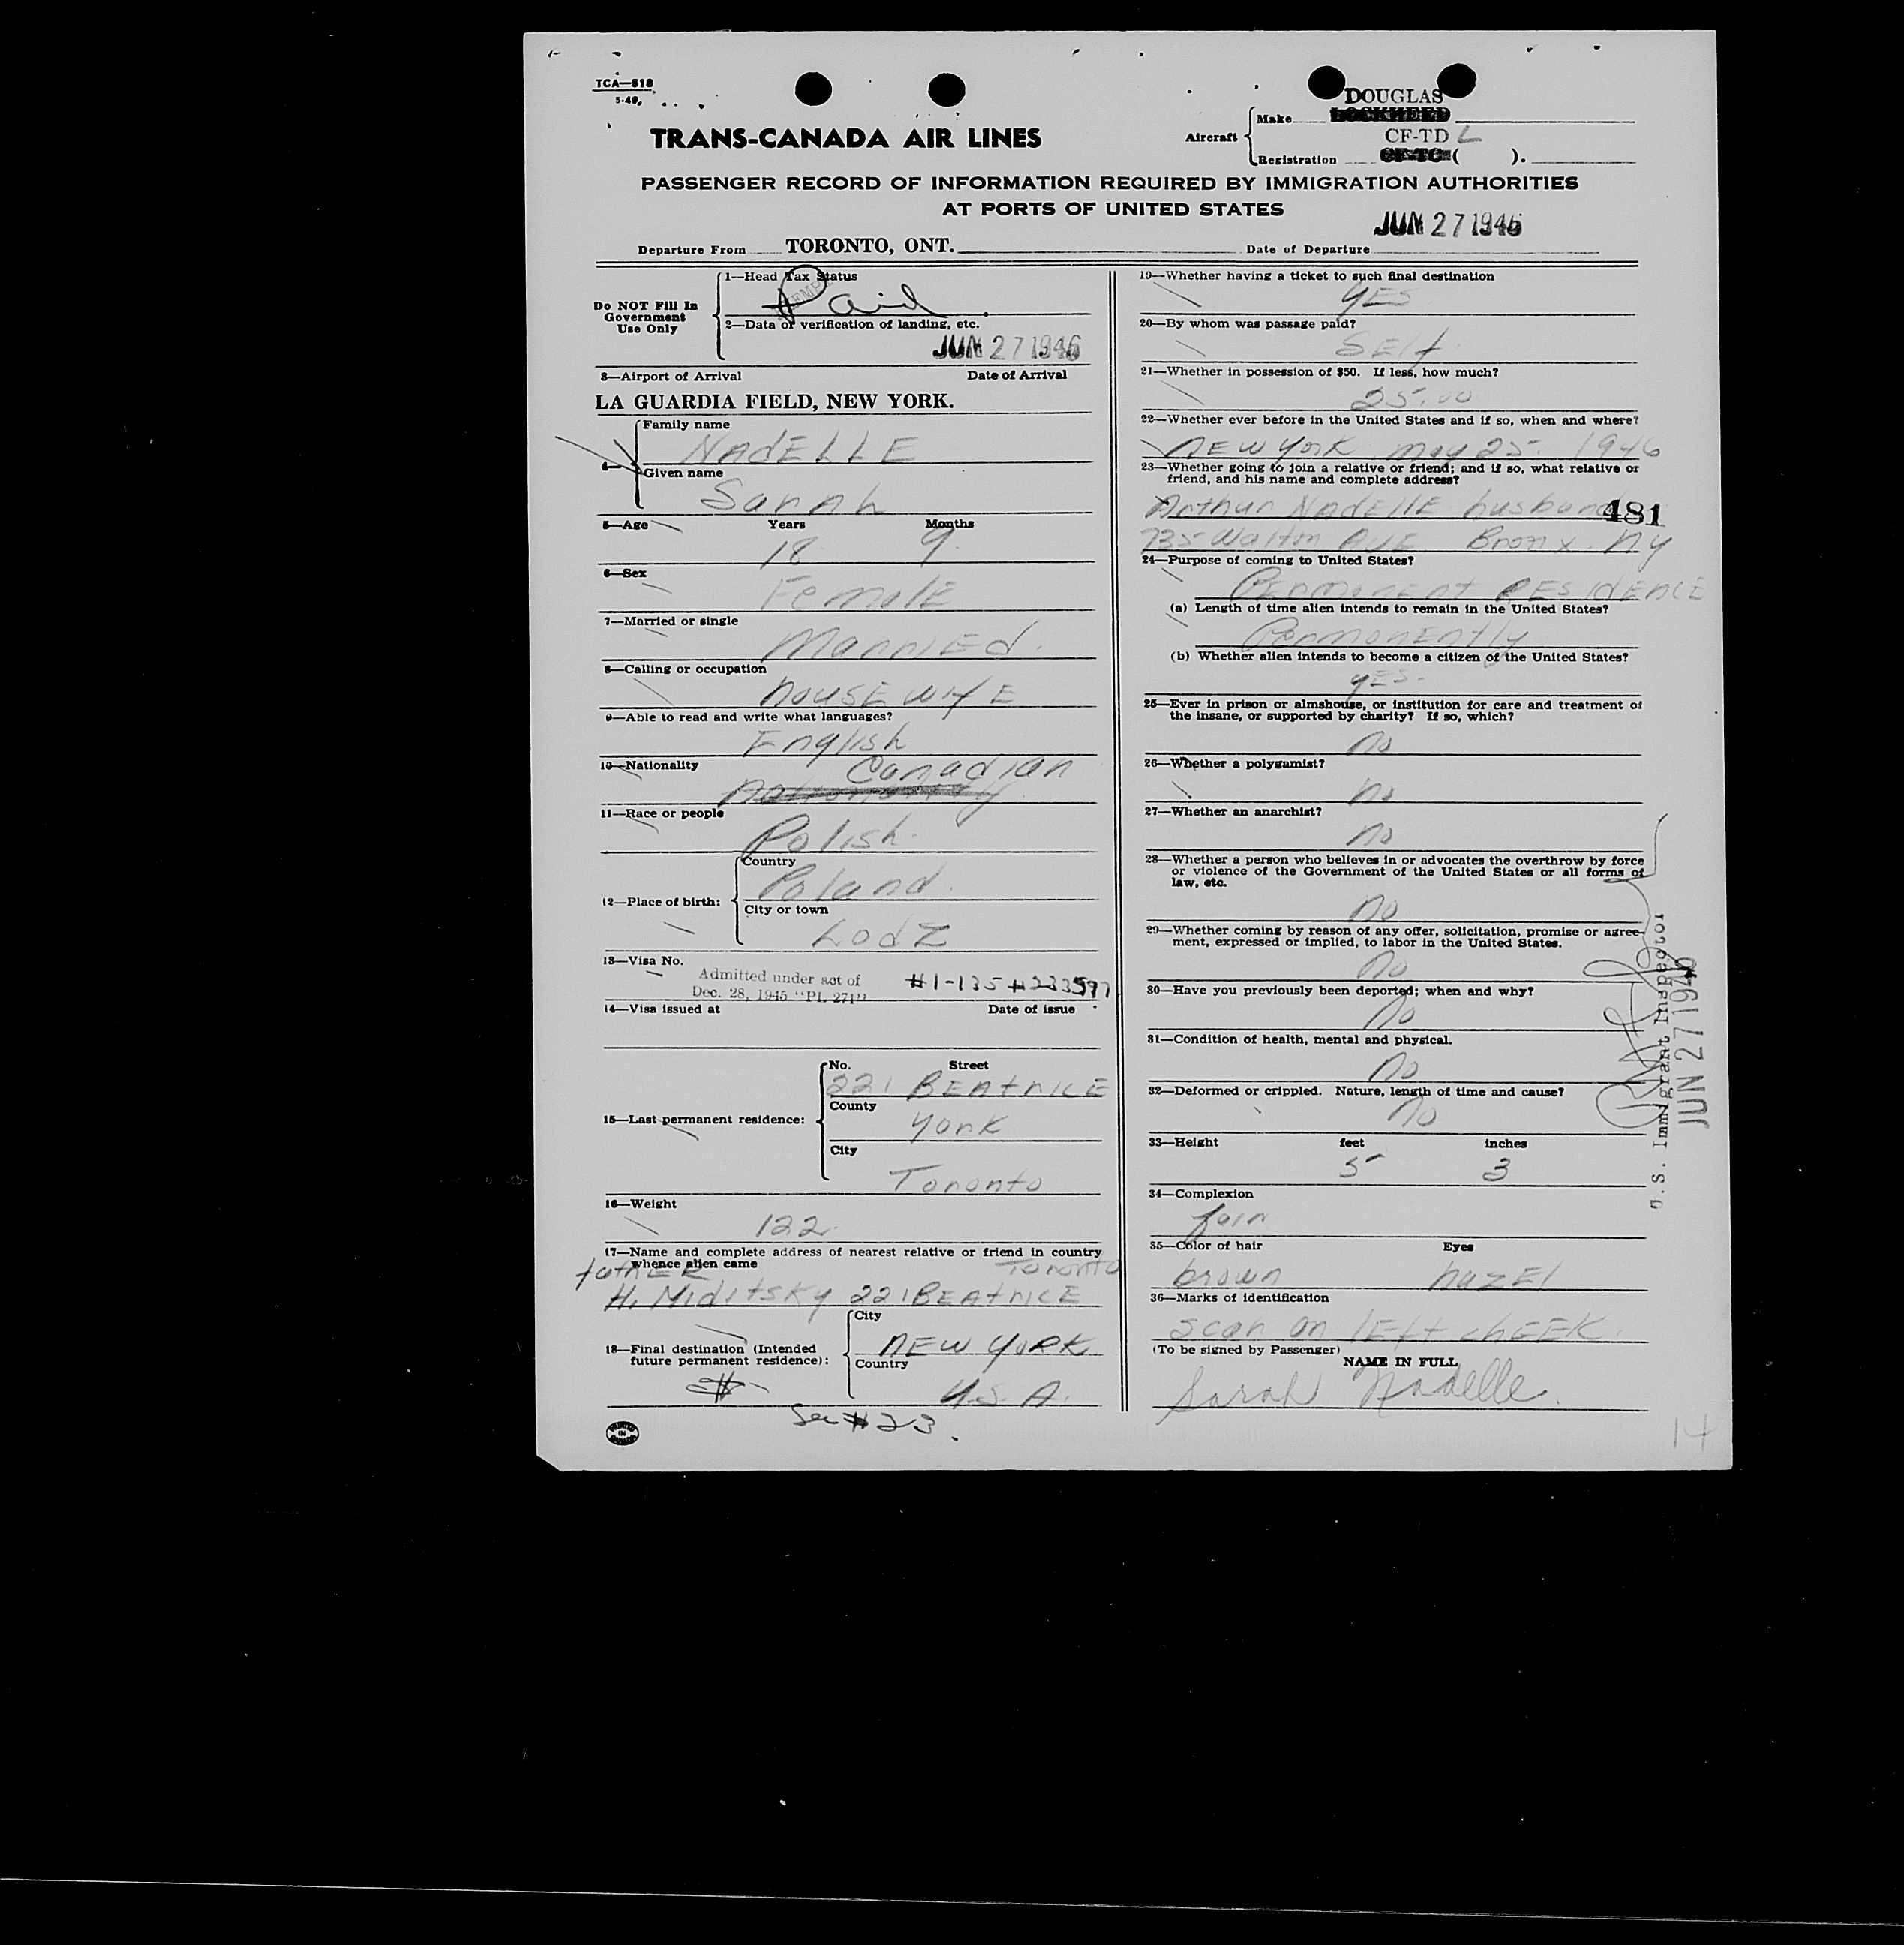 TCA—518
5-46
DOUGLAS
Make LOCKHEED
TRANS-CANADA AIR LINES
Aircraft
CF-TD L
Registration CF-TC ( ).
PASSENGER RECORD OF INFORMATION REQUIRED BY IMMIGRATION AUTHORITIES
AT PORTS OF UNITED STATES
JUN 27 1946
Departure From TORONTO, ONT.
Date of Departure
Do NOT Fill In
Government
Use Only
1—Head Tax Status
Paid
2—Data or verification of landing, etc.
JUN 27 1946
3—Airport of Arrival Date of Arrival
LA GUARDIA FIELD, NEW YORK.
4—
Family name
NAdELLE
Given name
SarAh
5—Age Years Months
18 9
6—Sex
FemalE
7—Married or single
MarriEd.
8—Calling or occupation
housE wifE
9—Able to read and write what languages?
English
10—Nationality Canadian
11—Race or people
Polish.
12—Place of birth:
Country
Poland.
City or town
LodZ
13—Visa No.
Admitted under act of
Dec. 28, 1945 "PL 271"
#1-135 #233597
14—Visa issued at Date of issue
15—Last permanent residence:
No. Street
221 BEAtriCE
County
York
City
Toronto
16—Weight
122
17—Name and complete address of nearest relative or friend in country
whence alien came
fathER Toronto
H. Miditsky 221 BEAtriCE
18—Final destination (Intended
future permanent residence):
City
NEW YORK
Country
U.S.A.
See #23.
PRINTED
IN
CANADA
19—Whether having a ticket to such final destination
YES
20—By whom was passage paid?
SElf
21—Whether in possession of $50. If less, how much?
25.00
22—Whether ever before in the United States and if so, when and where?
NEW York May 25. 1946
23—Whether going to join a relative or friend; and if so, what relative or
friend, and his name and complete address?
Arthur NAdEllE husband
481
735 Walton AVE Bronx. Ny
24—Purpose of coming to United States?
Permanent RESIdENCE
(a) Length of time alien intends to remain in the United States?
PermanEntly
(b) Whether alien intends to become a citizen of the United States?
yES.
25—Ever in prison or almshouse, or institution for care and treatment of
the insane, or supported by charity? If so, which?
no
26—Whether a polygamist?
no
27—Whether an anarchist?
no
28—Whether a person who believes in or advocates the overthrow by force
or violence of the Government of the United States or all forms of
law, etc.
no
29—Whether coming by reason of any offer, solicitation, promise or agree-
ment, expressed or implied, to labor in the United States.
no
30—Have you previously been deported; when and why?
no
31—Condition of health, mental and physical.
no
32—Deformed or crippled. Nature, length of time and cause?
no
33—Height feet inches
5 3
34—Complexion
fair
35—Color of hair Eyes
brown hazEl
36—Marks of identification
scar on lEft chEEK.
(To be signed by Passenger)
NAME IN FULL
Sarah Nadelle.
U.S. Immigrant Inspector
JUN 27 1946
14